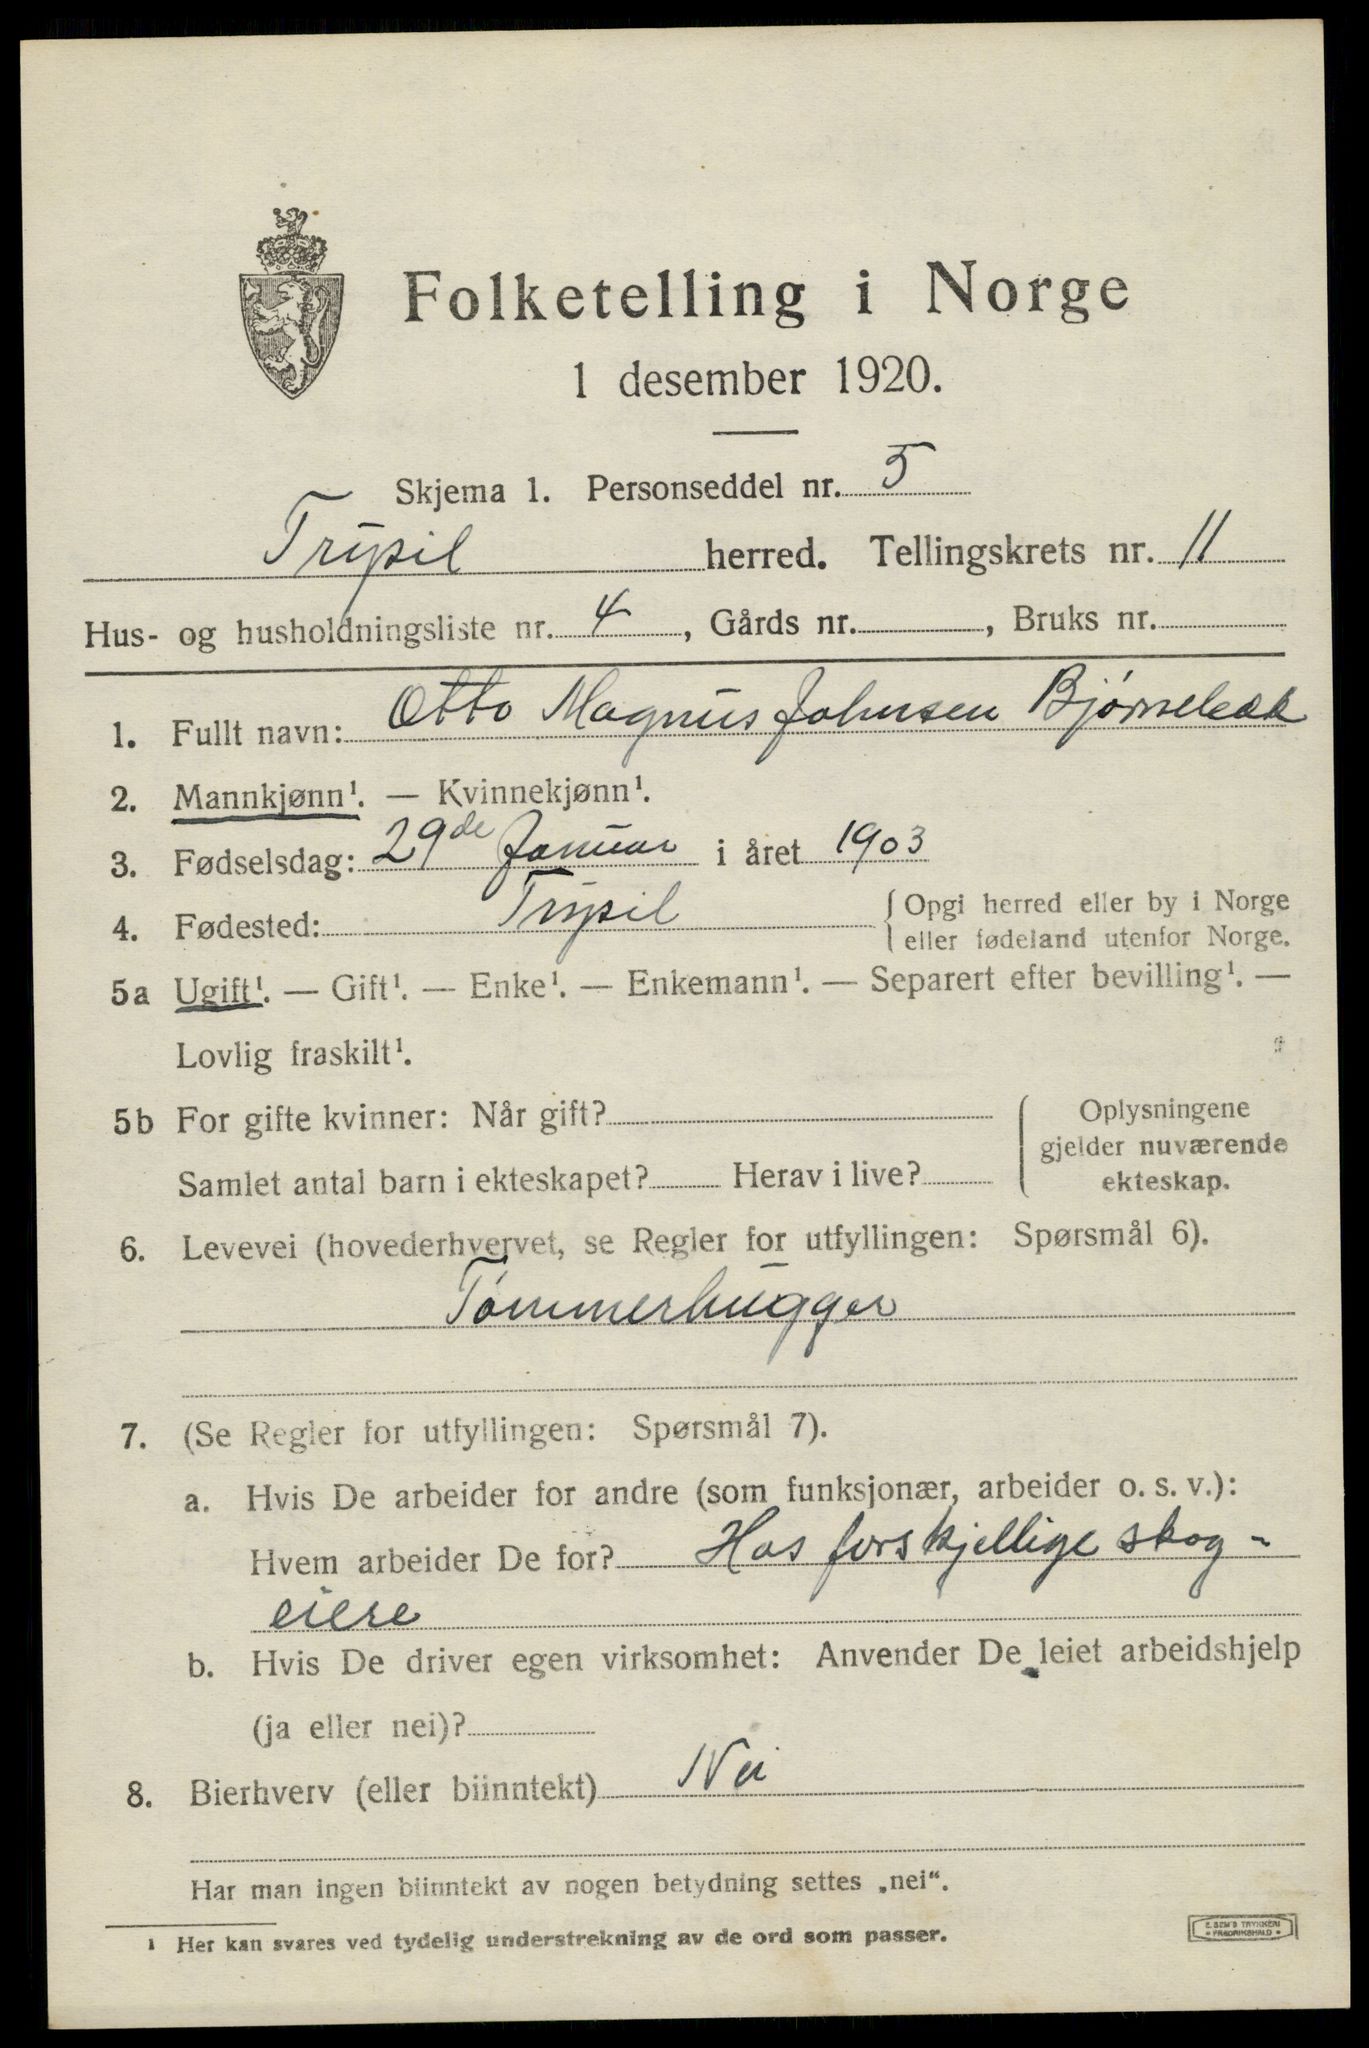 Folketelling i Norge
1 desember 1920.
Skjema 1. Personseddel nr. 5
Trysil herred. Tellingskrets nr. 11
Hus- og husholdningsliste nr. 4, Gårds nr. , Bruks nr.
1. Fullt navn: Otto Magnus Johnsen Bjørnebekk
2. Mannkjønn¹. — Kvinnekjønn¹.
3. Fødselsdag: 29de Januar i året 1903
4. Fødested: Trysil { Opgi herred eller by i Norge
eller fødeland utenfor Norge.
5a Ugift¹. — Gift¹. — Enke¹. — Enkemann¹. — Separert efter bevilling¹. —
Lovlig fraskilt¹.
5b For gifte kvinner: Når gift? { Oplysningene
gjelder nuværende
Samlet antal barn i ekteskapet? Herav i live? ekteskap.
6. Levevei (hovederhvervet, se Regler for utfyllingen: Spørsmål 6).
Tømmerhugger
7. (Se Regler for utfyllingen: Spørsmål 7).
a. Hvis De arbeider for andre (som funksjonær, arbeider o. s. v.):
Hvem arbeider De for? Hos forskjellige skog-
eiere
b. Hvis De driver egen virksomhet: Anvender De leiet arbeidshjelp
(ja eller nei)?
8. Bierhverv (eller biinntekt) Nei
Har man ingen biinntekt av nogen betydning settes „nei“.
¹ Her kan svares ved tydelig understrekning av de ord som passer.
E. SEM'S TRYKKERI
FREDRIKSHALD